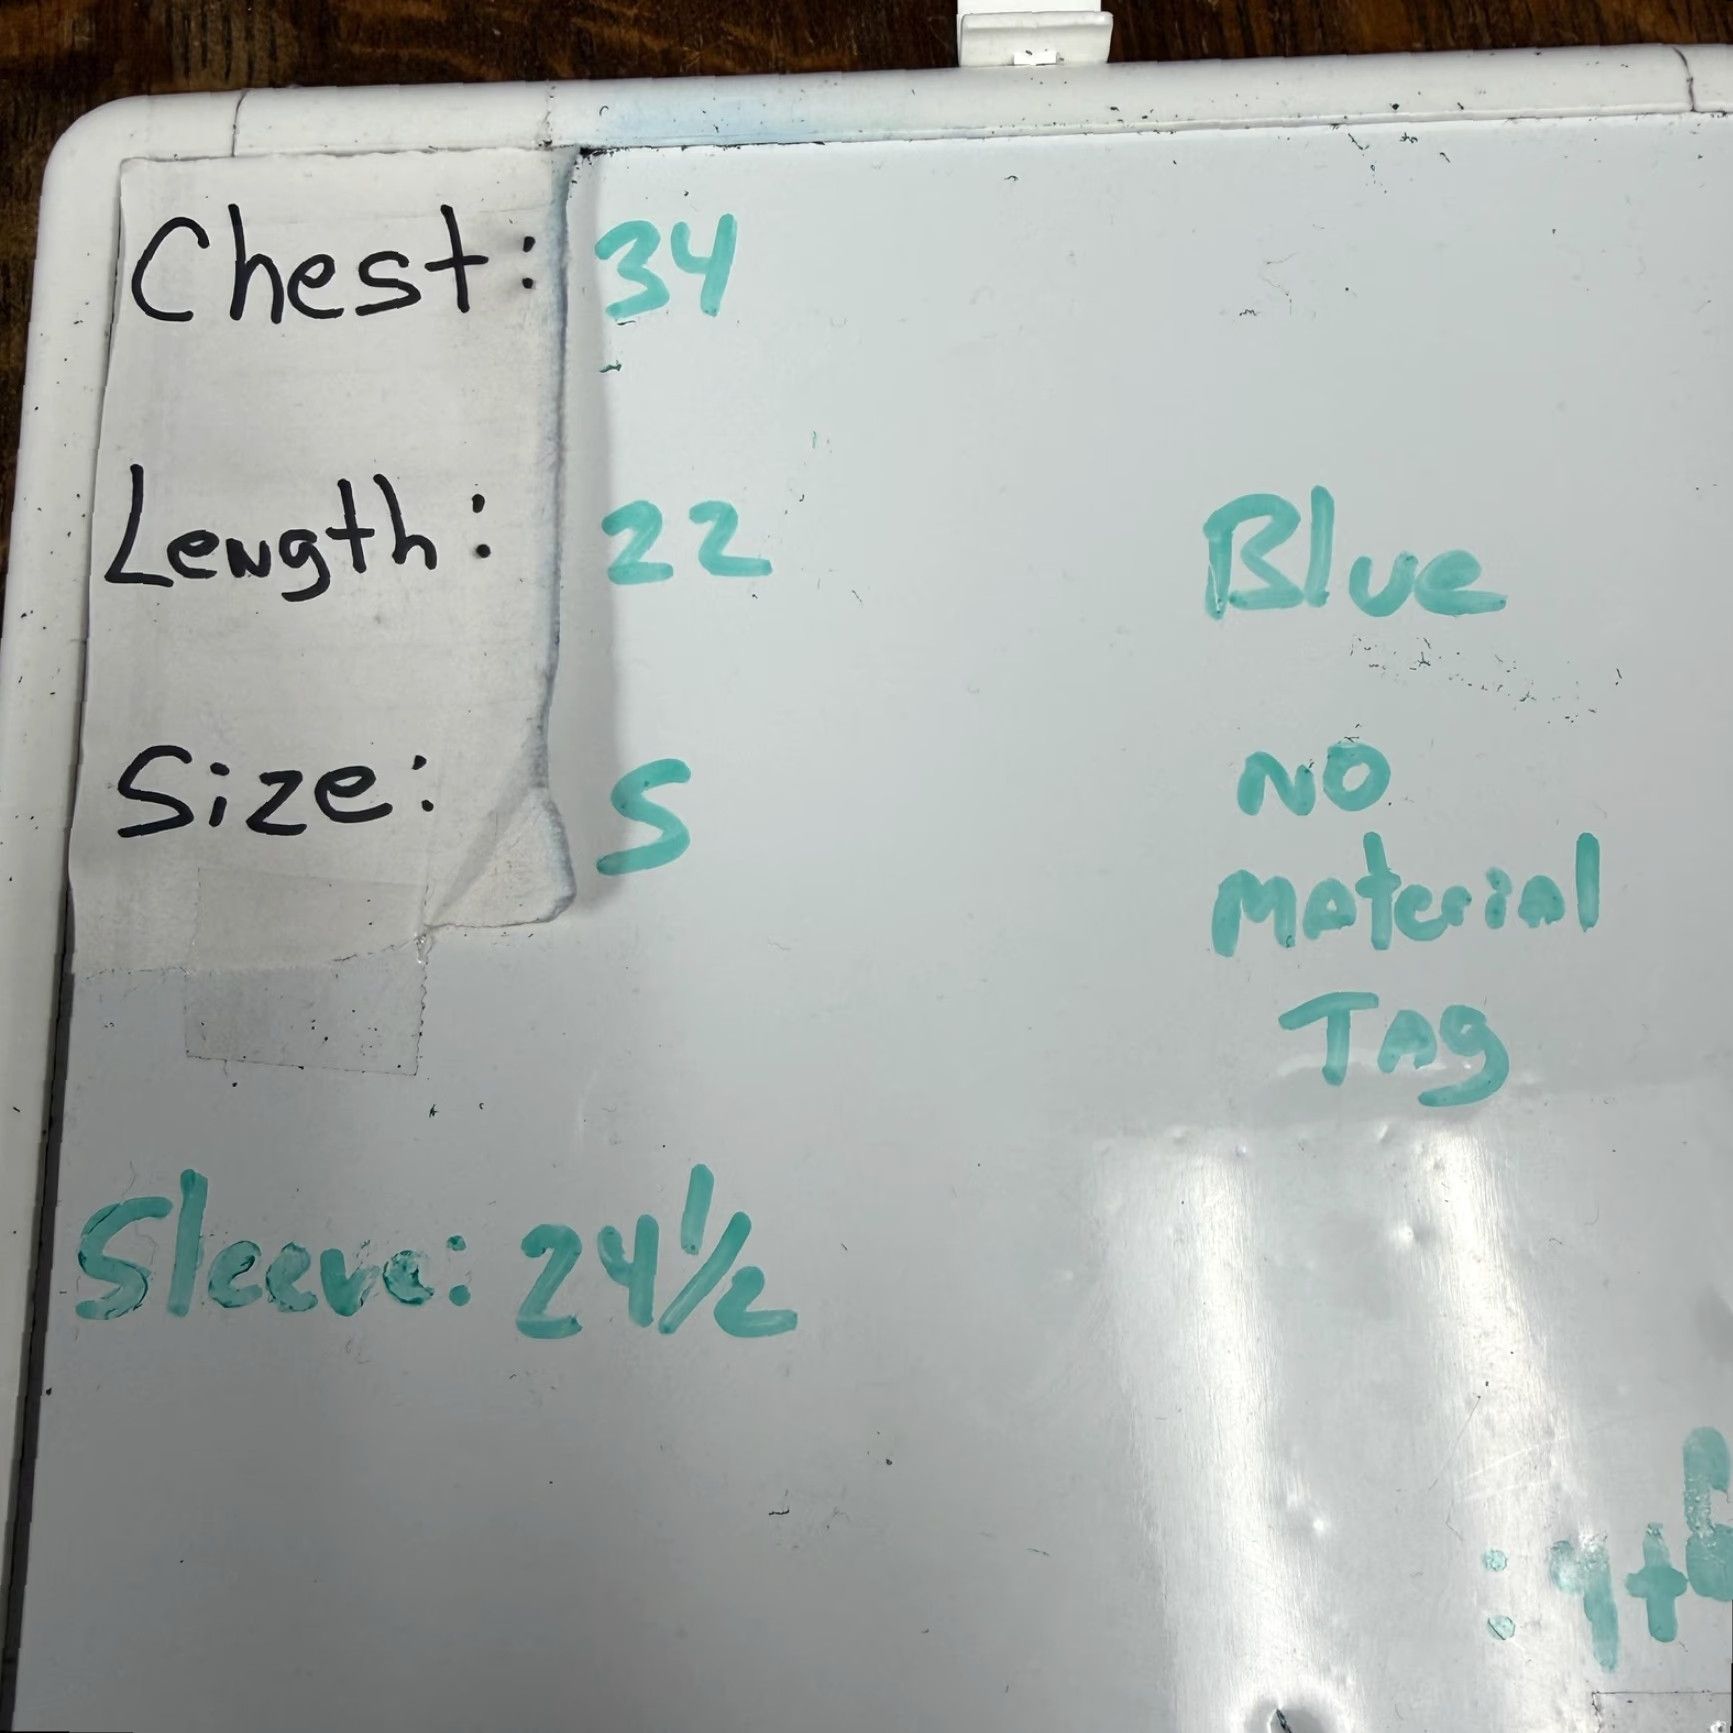 Chest: 34
Length: 22
Size: S
Blue
NO
Material
Tag
Sleeve: 24 1/2